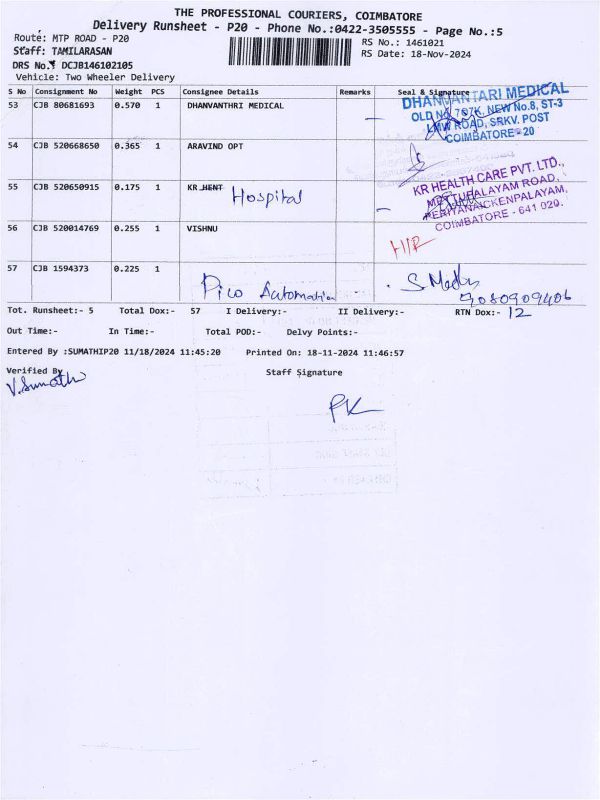 THE PROFESSIONAL COURIERS, COIMBATORE
Delivery Runsheet - P20 - Phone No.:0422-3505555 - Page No.:5
Route: MTP ROAD - P20
RS No.: 1461021
Staff: TAMILARASAN
RS Date: 18-Nov-2024
DRS No. DCJB146102105
Vehicle: Two Wheeler Delivery
S No Consignment No Weight PCS Consignee Details Remarks Seal & Signature
53 CJB 80681693 0.570 1 DHANVANTHRI MEDICAL
DHANVANTARI MEDICAL
OLD No. 707K, NEW No.8, ST-3
LMW ROAD, SRKV. POST
COIMBATORE - 20
54 CJB 520668650 0.365 1 ARAVIND OPT
55 CJB 520650915 0.175 1 KR HENT Hospital
KR HEALTH CARE PVT. LTD.,
METTUPALAYAM ROAD,
PERIYANAICKENPALAYAM,
COIMBATORE - 641 020.
56 CJB 520014769 0.255 1 VISHNU
57 CJB 1594373 0.225 1 Pico Automation
9080909406
Tot. Runsheet:- 5 Total Dox:- 57 I Delivery:- II Delivery:- RTN Dox:- 12
Out Time:- In Time:- Total POD:- Delvy Points:-
Entered By :SUMATHIP20 11/18/2024 11:45:20 Printed On: 18-11-2024 11:46:57
Verified By Staff Signature
V.Sumathi
PK